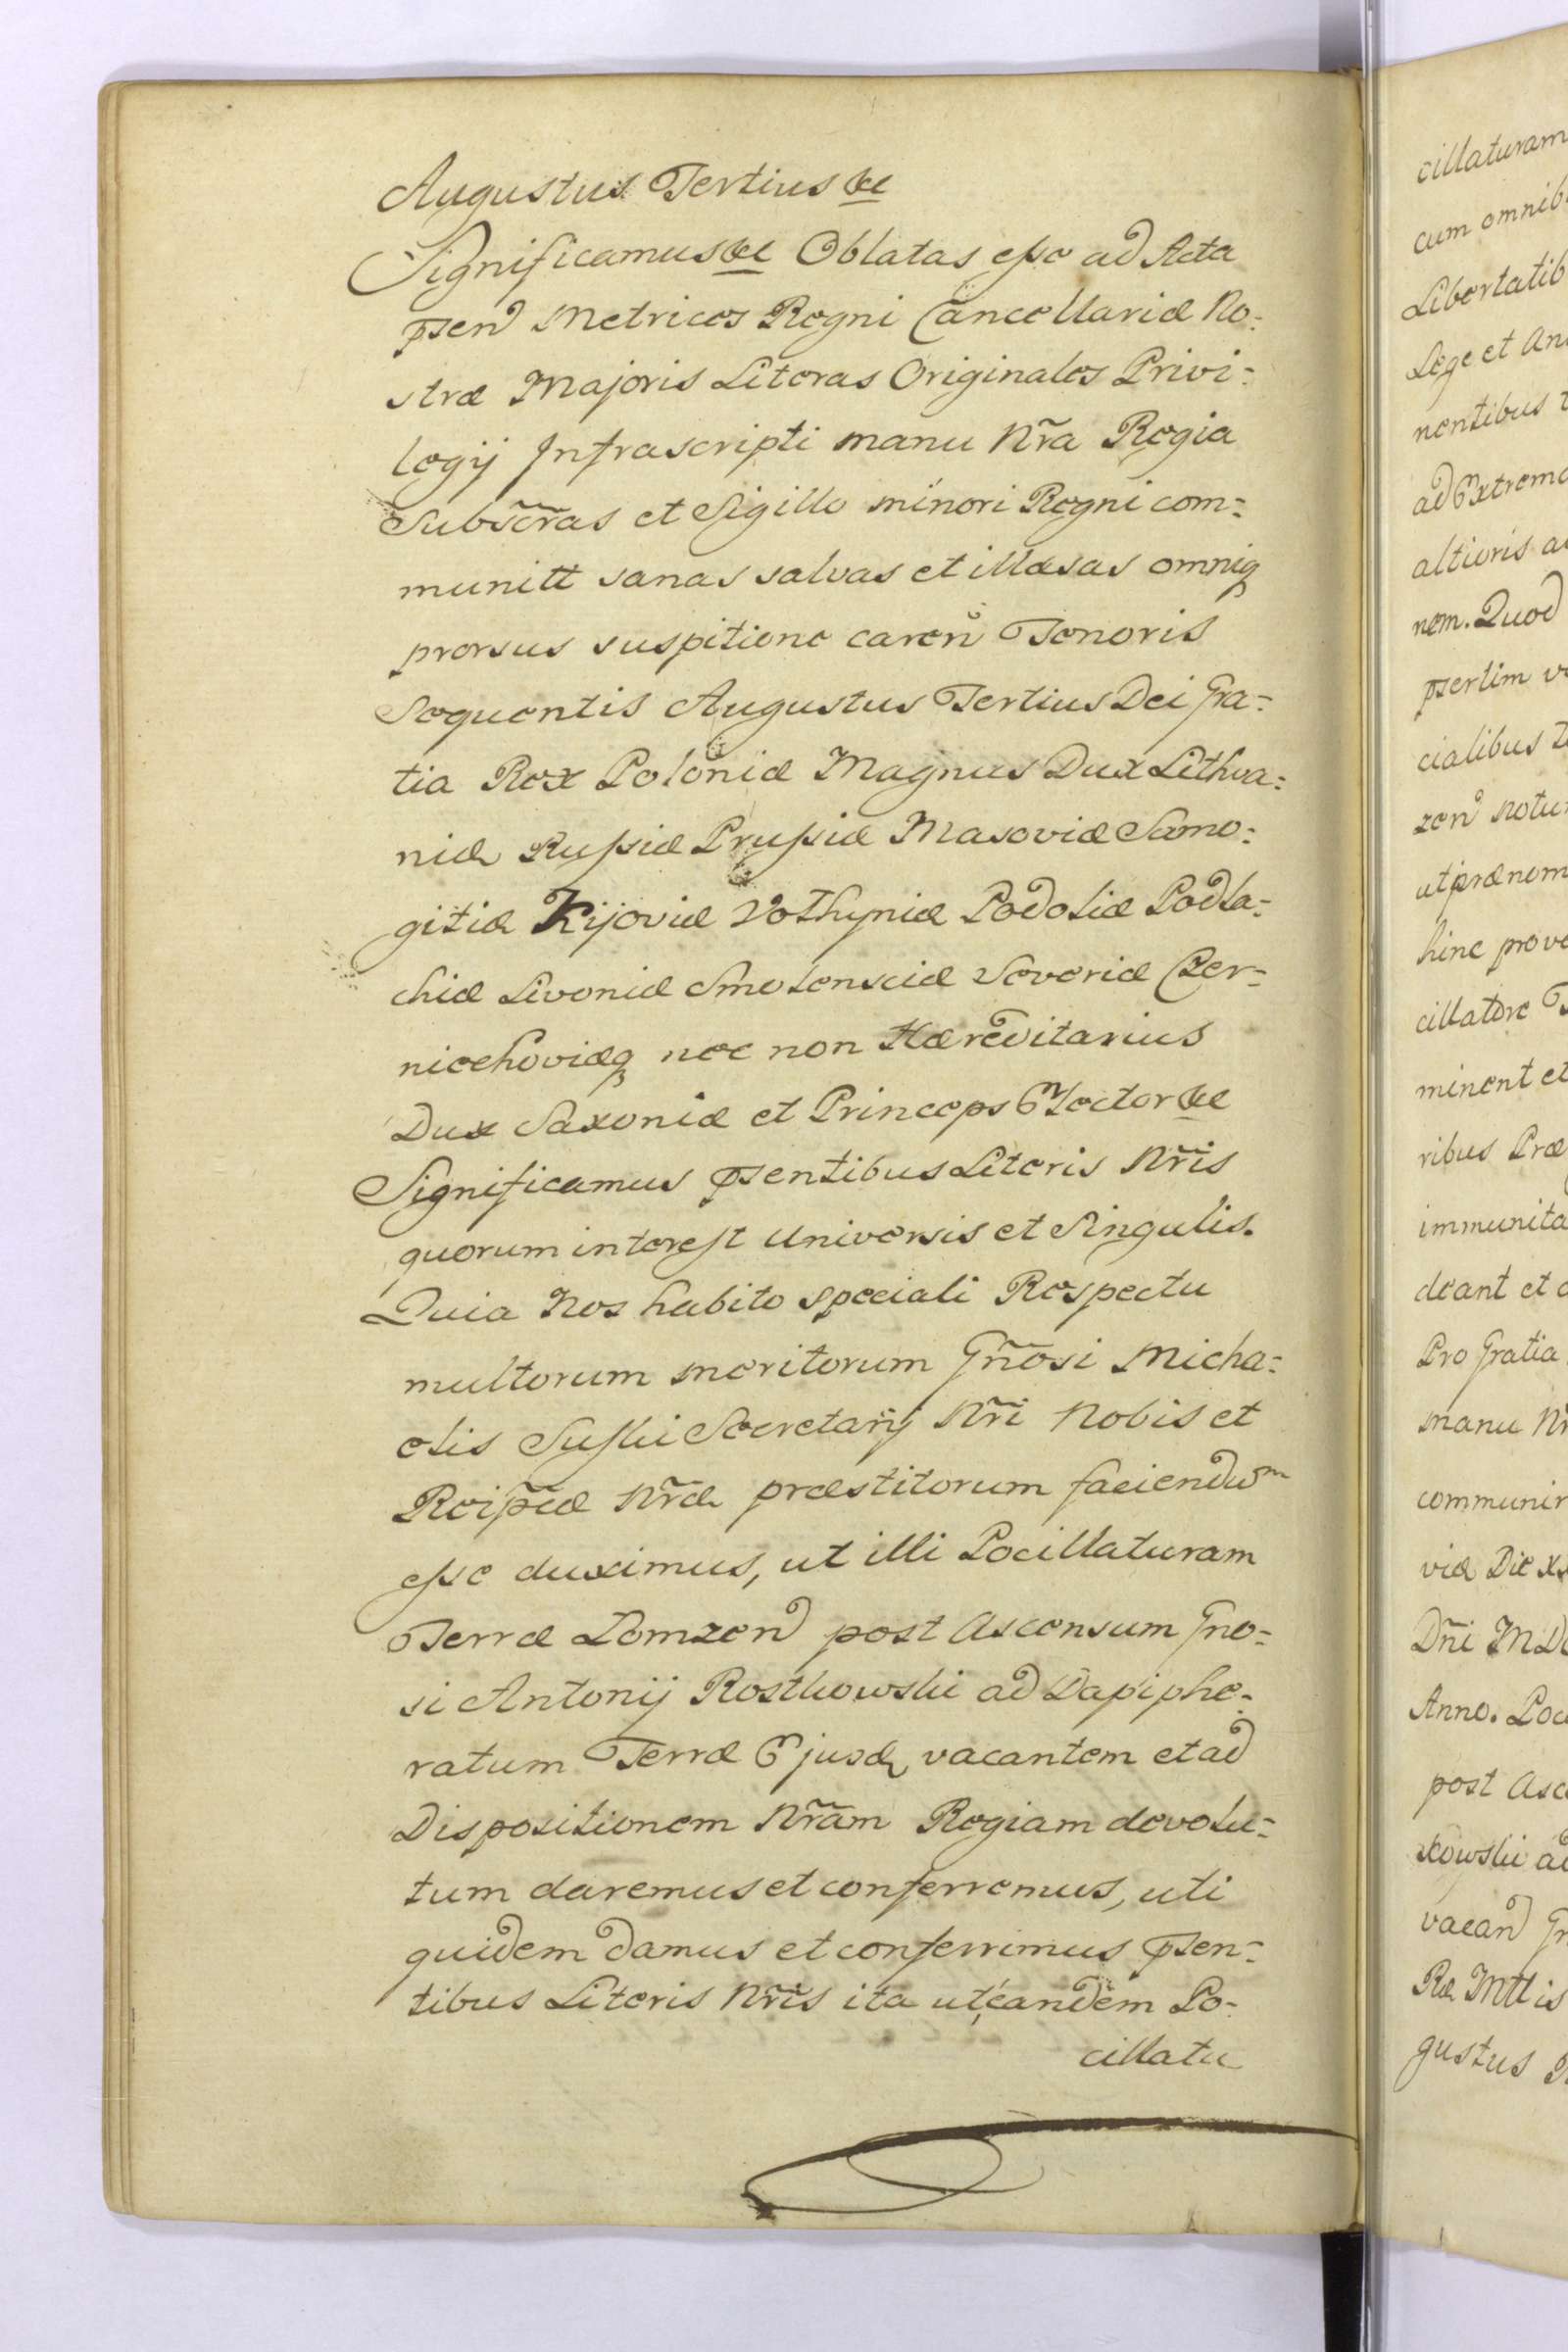 Augustus Tertius &c
Significamus &c Oblatas esse ad Acta
pnsen Metrices Regni Cancellariæ No:
stræ Majoris Literas Originales Privi:
legij Infrascripti manu Nr̃a Regia
Subscr̃as et Sigillo minori Regni com:
munitt sanas salvas et illæsas omniq
prorsus suspitione caren Tenoris
Sequentis Augustus Tertius Dei Gra:
tia Rex Poloniæ Magnus Dux Lithva:
niæ Russiæ Prussiæ Masoviæ Samo:
gitiæ Kijoviæ Volhyniæ Podoliæ Podla:
chiæ Livoniæ Smolensciæ Severiæ Czer-
niechoviæq nec non Hæreditarius
Dux Saxoniæ et Princeps Elector &c
Significamus pnsentibus Literis Nr̃is
quorum interest Universis et Singulis.
Quia Nos habito speciali Respectu
multorum meritorum Gñosi Micha:
elis Suski Secretarij Nr̃i Nobis et
Reip̃cæ Nr̃æ præstitorum faciendum
esse duximus, ut illi Pocillaturam
Terræ Lomzen post Ascensum Gno:
si Antonij Rostkowski ad Dapiphe-
ratum Terræ Ejusd vacantem et ad
Dispositionem Nr̃am Regiam devolu:
tum daremus et conferremus, uti
quidem damus et conferrimus pnsen-
tibus Literis Nr̃is ita ut eandem Po-
cillatu
cillaturam
cum omnib
Libertatib
Lege et
nentibus
ad Extrema
altioris
nem. Quod
pnsertim
cialibus
zen
ut prænom
hinc
cillatore
minent et
ribus Præ
immunita
deant et
Pro Gratia
manu
communir
viæ Die
Dñi
Anno.
post
kowski
vacan
Ræ Mttis
gustus